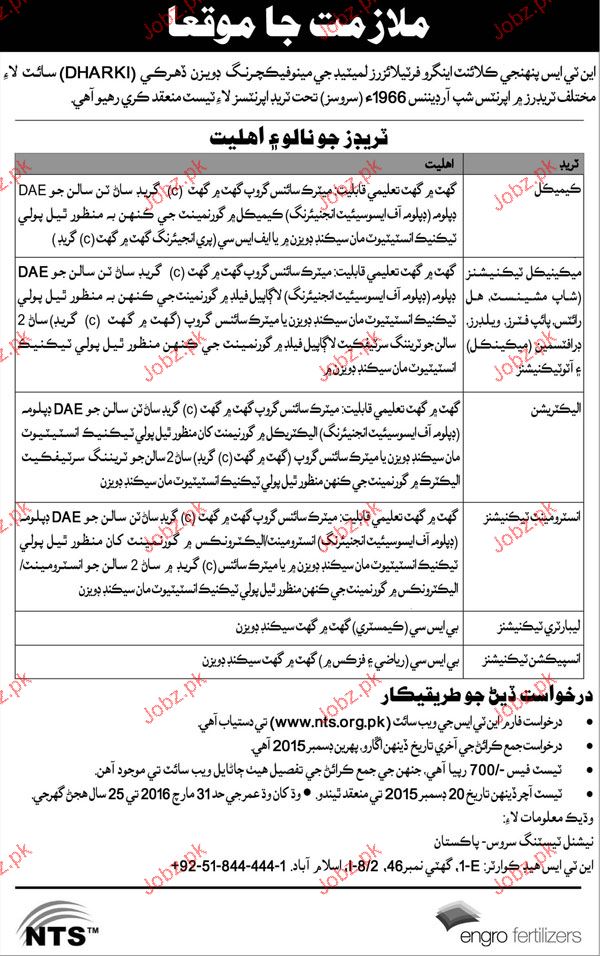 ملازمت جا موقعا
اين ٽي ايس پنهنجي ڪلائنٽ اينگرو فرٽيلائزرز لميٽيڊ جي مينوفيڪچرنگ ڊويزن ڏهرڪي (DHARKI) سائيٽ لاءِ
مختلف ٽريڊرز ۾ اپرنٽس شپ آرڊيننس 1966ء (سروسز) تحت ٽريڊ اپرنٽسز لاءِ ٽيسٽ منعقد ڪري رهيو آهي.
ٽريڊز جو نالو ۽ اهليت
ٽريڊ
اهليت
ڪيميڪل
گهٽ ۾ گهٽ تعليمي قابليت: ميٽرڪ سائنس گروپ گهٽ ۾ گهٽ (c) گريڊ ساڻ ٽن سالن جو DAE
ڊپلوم (ڊپلوم آف ايسوسيئيٽ انجنيئرنگ) ڪيميڪل ۾ گورنمينٽ جي ڪنهن به منظور ٿيل پولي
ٽيڪنيڪ انسٽيٽيوٽ مان سيڪنڊ ڊويزن ۾ يا ايف ايس سي (پري انجيئرنگ گهٽ ۾ گهٽ (c) گريڊ )
ميڪينيڪل ٽيڪنيشنز
(شاپ مشينسٽ، هل
رائٽس، پائپ فٽرز، ويلڊرز،
ڊرافٽسمين (ميڪينڪل)
۽ آٽو ٽيڪنيشنز
گهٽ ۾ گهٽ تعليمي قابليت: ميٽرڪ سائنس گروپ گهٽ ۾ گهٽ (c) گريڊ ساڻ ٽن سالن جو DAE
ڊپلوم (ڊپلوم آف ايسوسيئيٽ انجنيئرنگ) لاڳاپيل فيلڊ ۾ گورنمينٽ جي ڪنهن به منظور ٿيل پولي
ٽيڪنيڪ انسٽيٽيوٽ مان سيڪنڊ ڊويزن يا ميٽرڪ سائنس گروپ (گهٽ ۾ گهٽ (c) گريڊ) ساڻ 2
سالن جو ٽريننگ سرٽيفڪيٽ لاڳاپيل فيلڊ ۾ گورنمينٽ جي ڪنهن منظور ٿيل پولي ٽيڪنيڪ
انسٽيٽيوٽ مان سيڪنڊ ڊويزن ۾
اليڪٽريشن
گهٽ ۾ گهٽ تعليمي قابليت: ميٽرڪ سائنس گروپ گهٽ ۾ گهٽ (c) گريڊ ساڻ ٽن سالن جو DAE ڊپلومه
(ڊپلوم آف ايسوسيئيٽ انجنيئرنگ) اليڪٽريڪل ۾ گورنيمنٽ کان منظور ٿيل پولي ٽيڪنيڪ انسٽيٽيوٽ
مان سيڪنڊ ڊويزن يا ميٽرڪ سائنس گروپ (گهٽ ۾ گهٽ (c) گريڊ) ساڻ 2 سالن جو ٽريننگ سرٽيفڪيٽ
اليڪٽرڪ ۾ گورنمينٽ جي ڪنهن منظور ٿيل پولي ٽيڪنيڪ انسٽيٽيوٽ مان سيڪنڊ ڊويزن
انسٽرومينٽ ٽيڪنيشنز
گهٽ ۾ گهٽ تعليمي قابليت: ميٽرڪ سائنس گروپ گهٽ ۾ گهٽ (c) گريڊ ساڻ ٽن سالن جو DAE ڊپلومه
(ڊپلوم آف ايسوسيئيٽ انجنيئرنگ) انسٽرومينٽ/اليڪٽرونڪس ۾ گورنمينٽ کان منظور ٿيل پولي
ٽيڪنيڪ انسٽيٽيوٽ مان سيڪنڊ ڊويزن ۾ يا ميٽرڪ سائنس (c) گريڊ ۾ ساڻ 2 سالن جو انسٽرومينٽ/
اليڪٽرونڪس ۾ گورنمينٽ جي ڪنهن منظور ٿيل پولي ٽيڪنيڪ انسٽيٽيوٽ مان سيڪنڊ ڊويزن
ليبارٽري ٽيڪنيشنز
بي ايس سي (ڪيمسٽري) گهٽ ۾ گهٽ سيڪنڊ ڊويزن
انسپيڪشن ٽيڪنيشنز
بي ايس سي (رياضي ۽ فزڪس ۾) گهٽ ۾ گهٽ سيڪنڊ ڊويزن
درخواست ڏيڻ جو طريقيڪار
• درخواست فارم اين ٽي ايس جي ويب سائٽ (www.nts.org.pk) تي دستياب آهي.
• درخواست جمع ڪرائڻ جي آخري تاريخ ڏينهن اڱارو، پهرين ڊسمبر 2015 آهي.
• ٽيسٽ فيس -/700 رپيا آهي، جنهن جي جمع ڪرائڻ جي تفصيل هيٺ ڄاڻايل ويب سائٽ تي موجود آهن.
• ٽيسٽ آچر ڏينهن تاريخ 20 ڊسمبر 2015 تي منعقد ٿيندو. • وڌ کان وڌ عمر جي حد 31 مارچ 2016 تي 25 سال هجڻ گهرجي.
وڌيڪ معلومات لاءِ:
نيشنل ٽيسٽنگ سروس- پاڪستان
اين ٽي ايس هيڊ ڪوارٽر: 1-E، گهٽي نمبر 46، I-8/2، اسلام آباد. +92-51-844-444-1
NTS™
engro fertilizers
Jobz.pk